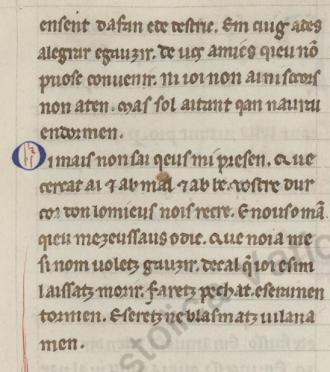 ensent dafan ede testric. Em cuig ades
alegrar egauzir. de uos amics qieu nō
puosc conuenir. ni ioi non ai ni secors
non aten. mas sol aitant qan naurai
endormen.
Oimais non sai qeus mi presen. Que
cercat ai ⁊ ab mal ⁊ ab be. uostre dur
cor don lo mieus nois recre. E nouso mā
qieu mezeus sauo dic. Que no ia me
si nom uoletz gauzir. de cal qͥoi esim
laissatz morir. faretz pechat. eserai men
tormen. E seretz ne blasmatz uilana
men.